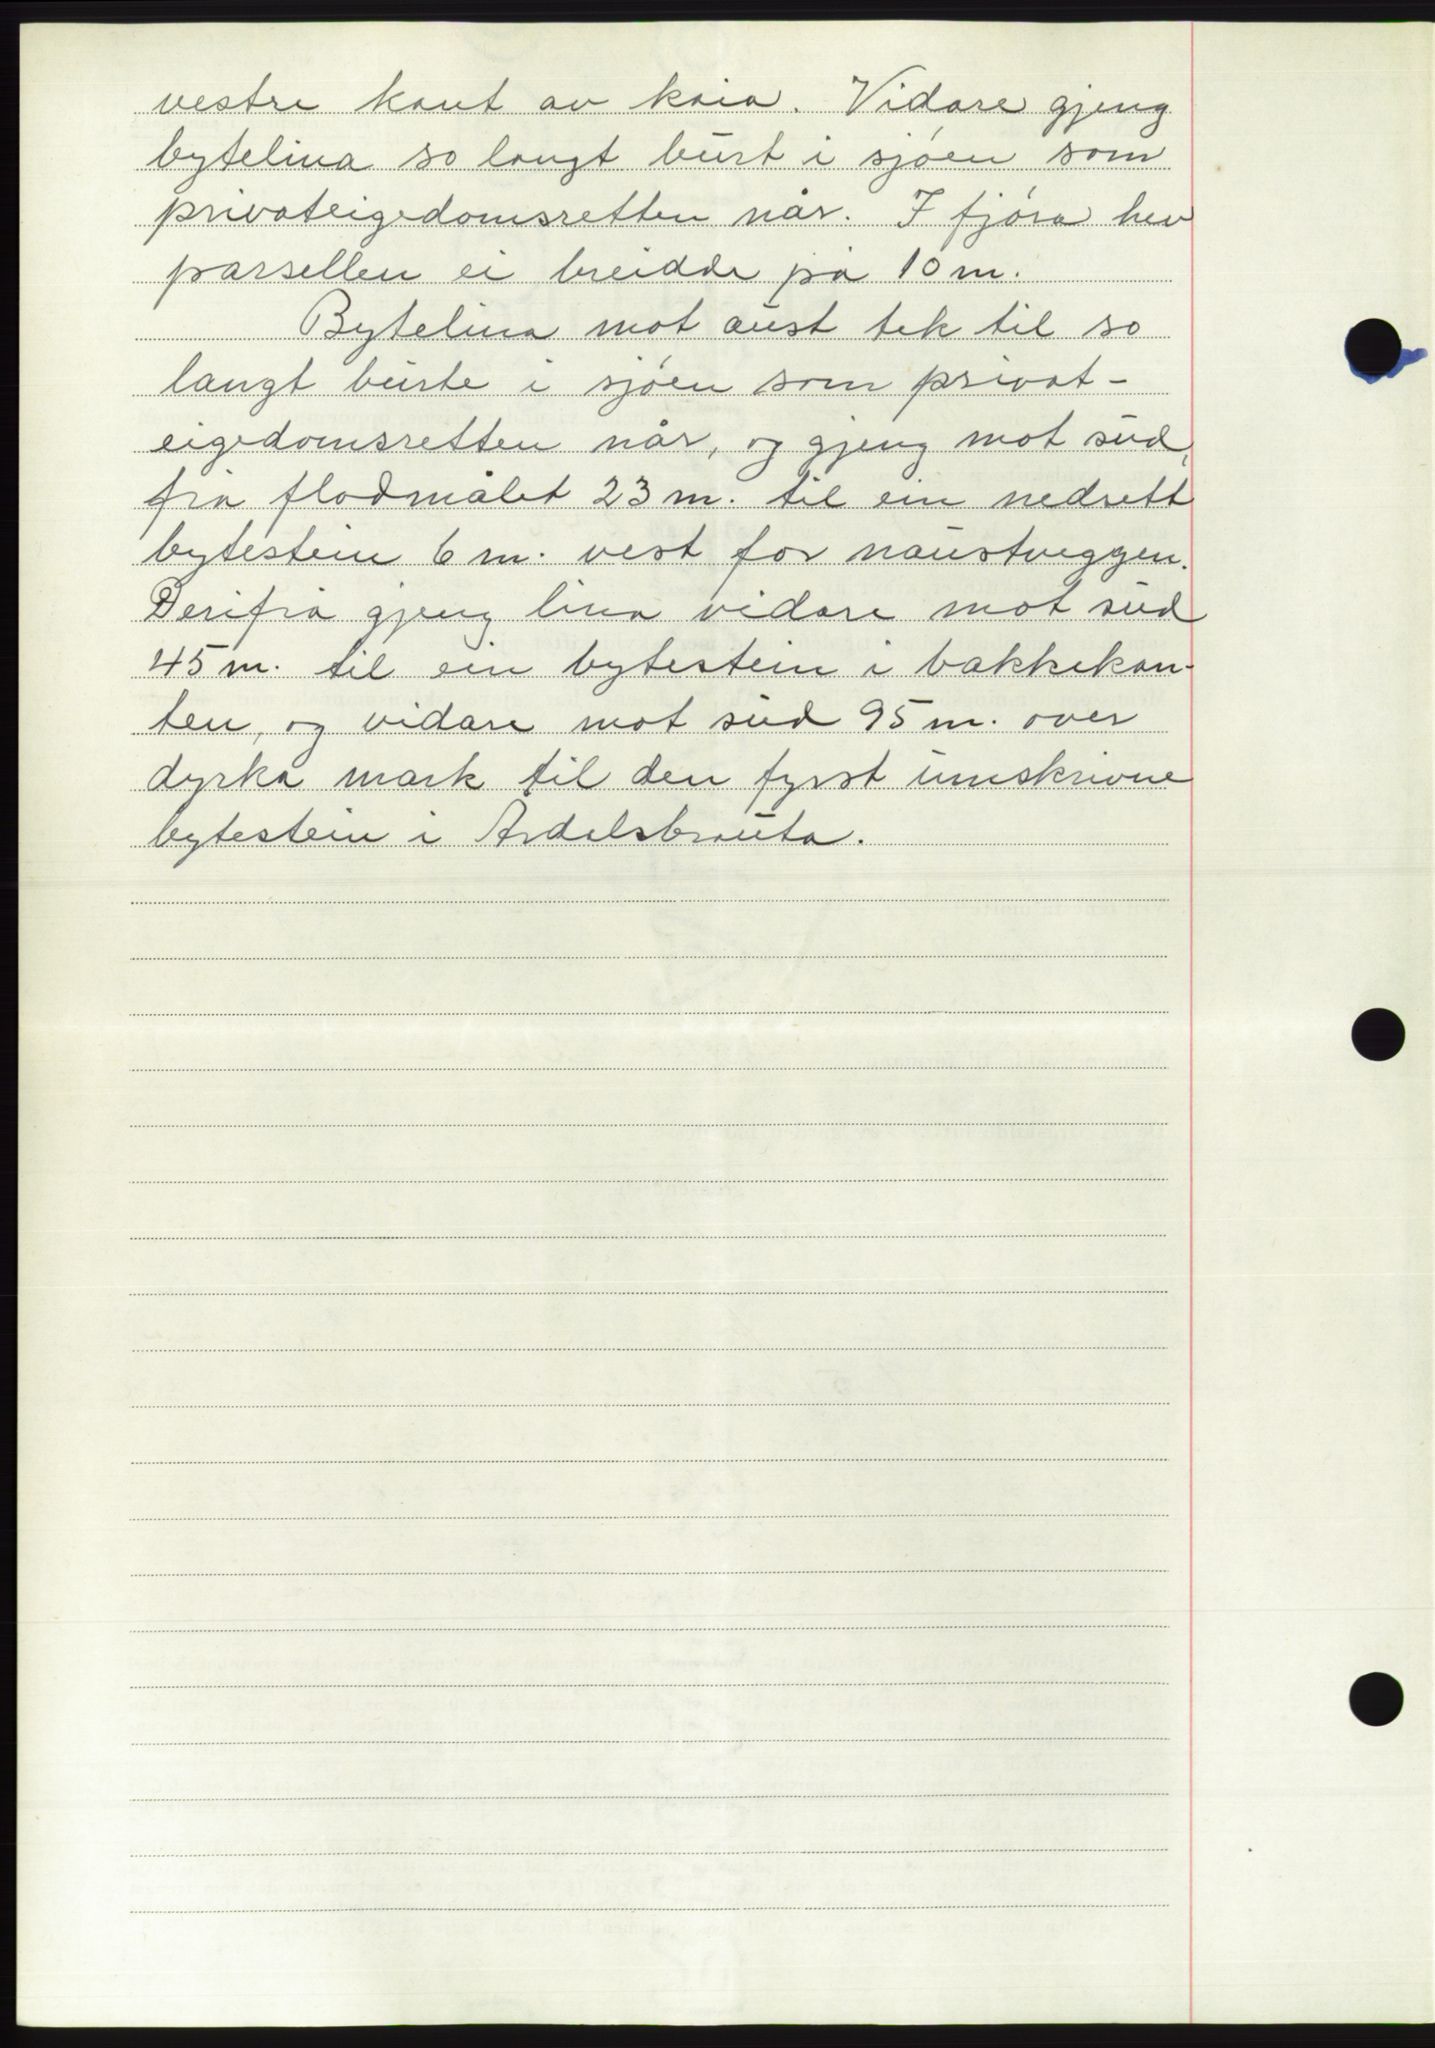 vestre kant av kaia. Vidare gjeng
bytelina so langt burt i sjøen som
privateigedomsretten når. I fjøra hev
parsellen ei breidde på 10 m.
Bytelina mot aust tek til so
langt burte i sjøen som privat-
eigedomsretten når, og gjeng mot sud,
frå flodmålet 23 m. til ein nedsett
bytestein 6 m. vest for naustveggen.
Derifrå gjeng lina vidare mot sud
45 m. til ein bytestein i bakkekan-
ten, og vidare mot sud 95 m. over
dyrka mark til den fyrst umskrivne
bytestein i Ardalsbrauta.